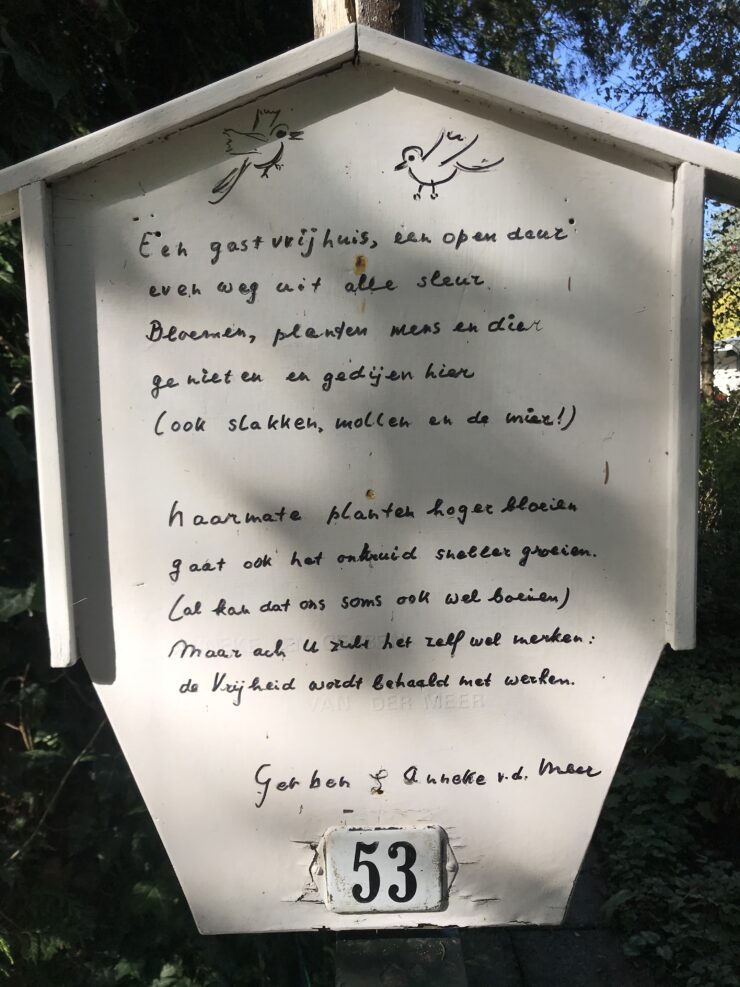 Een gastvrijhuis, een open deur
even weg uit alle sleur.
Bloemen, planten mens en dier
genieten en gedijen hier
(ook slakken, mollen en de mier!)
Naarmate planten hoger bloeien
gaat ook het onkruid sneller groeien.
(al kan dat ons soms ook wel boeien)
Maar ach U zult het zelf wel merken:
de Vrijheid wordt behaald met werken.
VAN DER MEER
Gerben & Anneke v.d. Meer
53